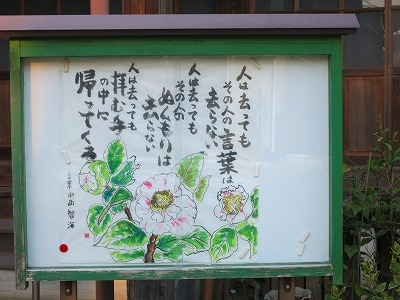 人は去っても
その人の言葉は
去らない
人は去っても
その人の
ぬくもりは
去らない
人は去っても
拝む手
の中に
帰ってくる
中西智海